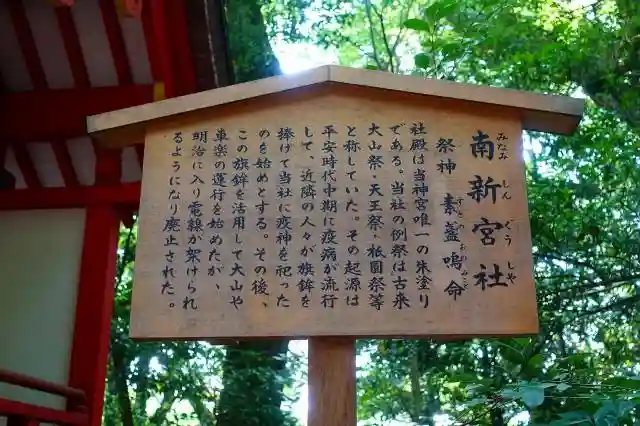 南新宮社
みなみしんぐうしゃ
祭神 素盞嗚命
すさのおのみこと
社殿は当神宮唯一の朱塗り
である。当社の例祭は古来
大山祭・天王祭・祇園祭等
と称していた。その起源は
平安時代中期に疫病が流行
して、近隣の人々が旗鉾を
捧げて当社に疫神を祀った
のを始めとする。その後、
この旗鉾を活用して大山や
車楽の運行を始めたが、
明治に入り電線が架けられ
るようになり廃止された。